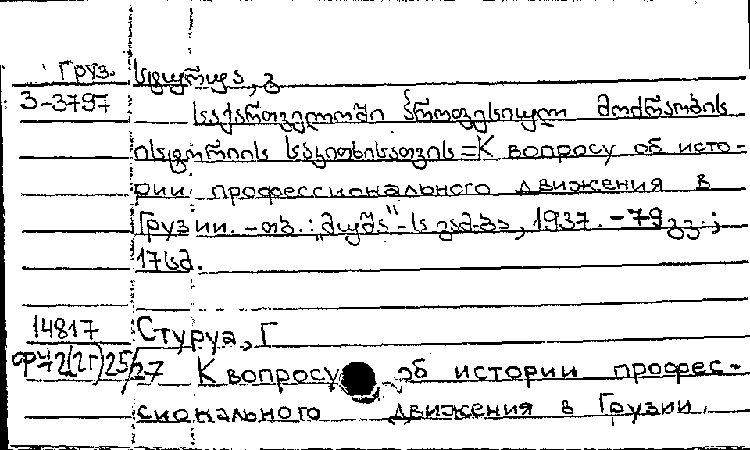 Груз. სტურუა, გ
3-3797 საქართველოში პროფესიული მოძრაობის
ისტორიის საკითხისათვის = К вопросу об исто-
рии профессионального движения в
Грузии. - თბ.: „მუშა"-ს გამ-ბა, 1937. - 79 გვ.;
17სმ.
14817 Стуруа, Г
К вопросу об истории профес-
сионального движения в Грузии.